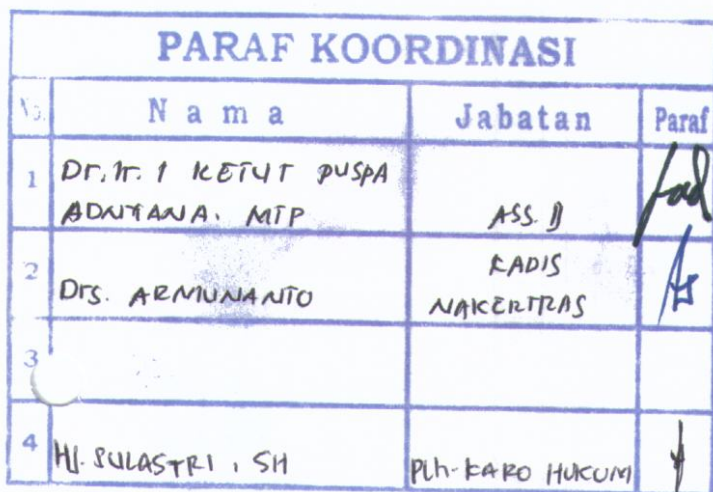 PARAF KOORDINASI
No. Nama Jabatan Paraf
1 Dr. Ir. I KETUT PUSPA
ADNYANA. MTP ASS. II
2 Drs. ARMUNANTO KADIS
NAKERTRAS
3
4 Hj. SULASTRI, SH Plh-KARO HUKUM